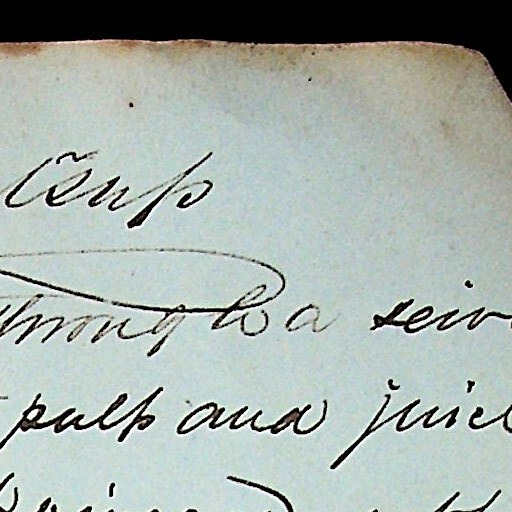 Csup
through a seiv
pulp and juice